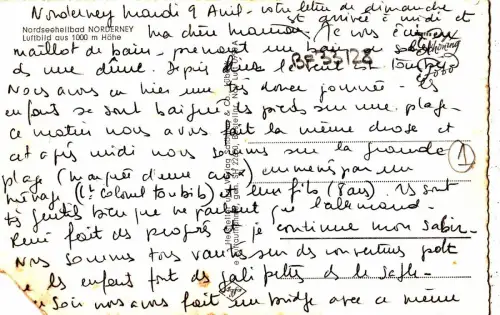 Norderney mardi 9 Avril - votre lettre de dimanche
est arrivée à midi et
Nordseeheilbad NORDERNEY
Luftbild aus 1000 m Höhe
ma chère maman, je vous écris en
maillot de bain, prenant un bain de soleil
ds une dûne. Depuis hier le vent est tombé
BF 35728
Nous avons eu hier une très douce journée - les
enfants se sont baignés les pieds sur une plage -
ce matin nous avons fait la même chose et
cet après midi nous sommes sur la grande
1
plage (marquée d'une croix) emmenés par un
ménage (Lt Colonel toubib) et leur fils (8 ans). Ils sont
très gentils bien que ne parlant que l'allemand.
René fait des progrès et je continue mon sabir.
Nous sommes tous vautrés sur des couvertures
et les enfants font des galipettes ds le sable -
ce soir nous avons fait un bridge avec ce même